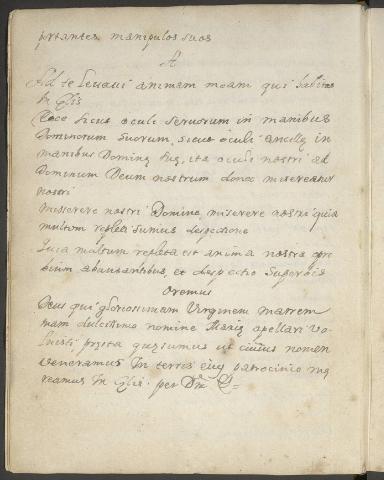 portantes manipulos suos
A
Ad te levavi animam meam qui habitas
In Cęlis
Ecce sicut oculi servorum in manibus
Dominorum suorum, sicut oculi ancillę in
manibus Dominę suę, ita oculi nostri ad
Dominum Deum nostrum donec misereatur
nostri
Miserere nostri Domine, miserere nostri quia
multum repleti sumus despectione
Quia multum repleta est anima nostra opro
brium abundantibus, et despectio superbis
Oremus
Deus qui gloriosissimam Virginem matrem
tuam dulcissimo nomine Marię apellari vo
luisti pręsta quęsumus ut cuius nomen
veneramus In terris eius patrocinio
In Cęlis. per